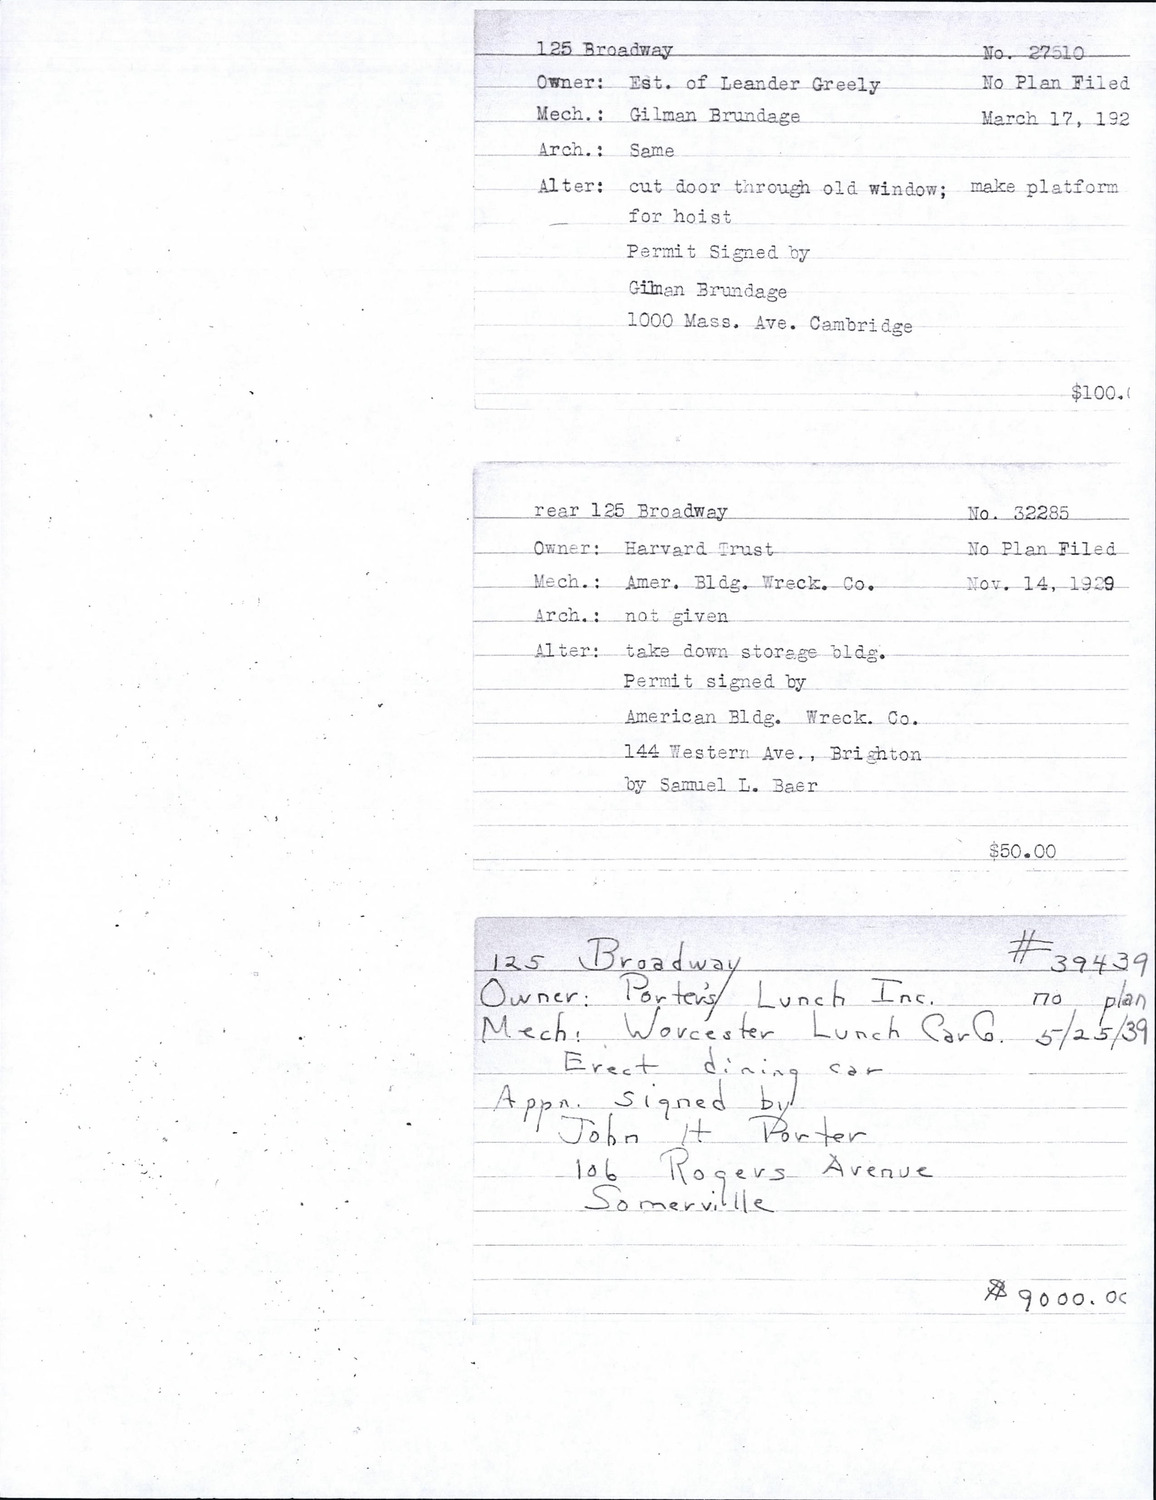 125 Broadway No. 27510
Owner: Est. of Leander Greely No Plan Filed
Mech.: Gilman Brundage March 17, 192
Arch.: Same
Alter: cut door through old window; make platform
for hoist
Permit Signed by
Gilman Brundage
1000 Mass. Ave. Cambridge
$100.
rear 125 Broadway No. 32285
Owner: Harvard Trust No Plan Filed
Mech.: Amer. Bldg. Wreck. Co. Nov. 14, 1929
Arch.: not given
Alter: take down storage bldg.
Permit signed by
American Bldg. Wreck. Co.
144 Western Ave., Brighton
by Samuel L. Baer
$50.00
125 Broadway #39439
Owner: Porter's Lunch Inc. no plan
Mech: Worcester Lunch Car Co. 5/25/39
Erect dining car
Appn. signed by
John H Porter
106 Rogers Avenue
Somerville
$9000.00